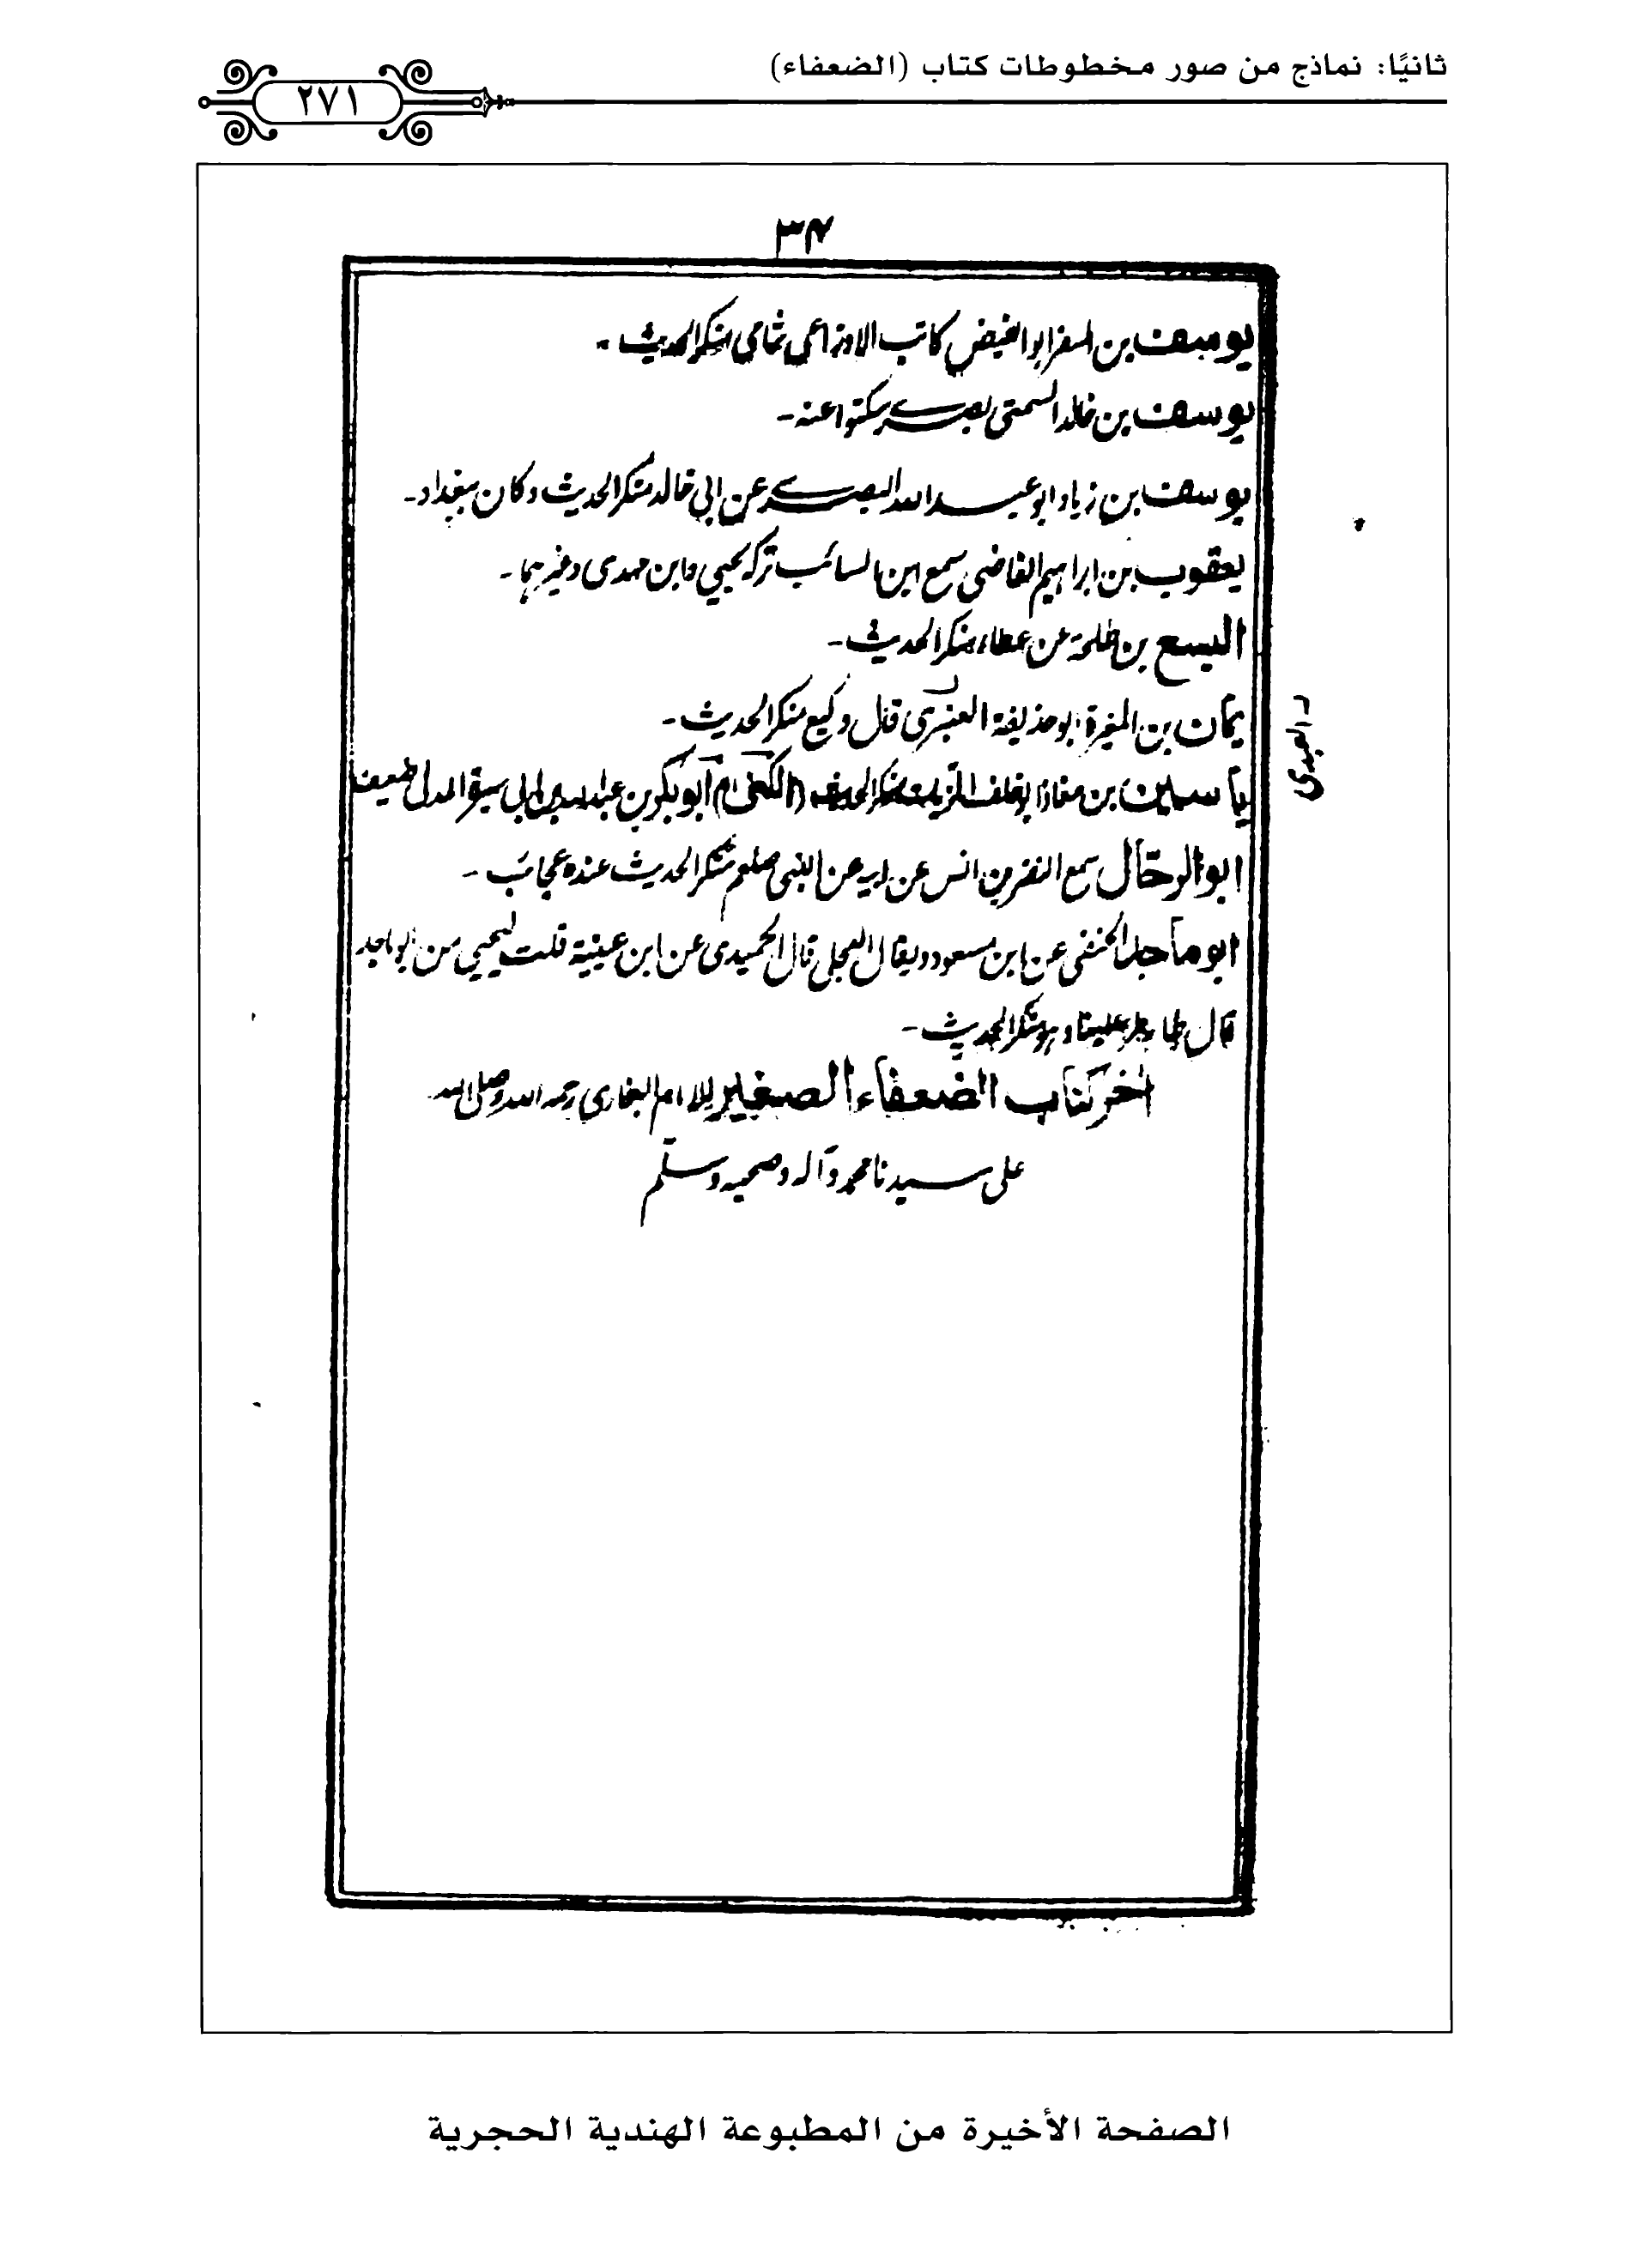 ثانيًا: نماذج من صور مخطوطات كتاب (الضعفاء)
٢٧١
٣٤
يوسف بن السفر ابو الفيض كاتب الاوزاعى شامى منكر الحديث ـ
يوسف بن خالد السمتى بصرى سكتوا عنه ـ
يوسف بن زياد ابو عبد الله البصرى عن ابى خالد منكر الحديث وكان ببغداد ـ
يعقوب بن ابراهيم القاضى سمع ابن السائب تركه يحيى وابن مهدى وغيرهما ـ
اليسع بن طلحة عن عطاء منكر الحديث ـ
يمان بن المغيرة ابو حذيفة العنبرى قال وكيع منكر الحديث ـ
العبدى
ياسين بن معاذ ابو خلف الزيات منكر الحديث ابو بكر بن عبد الله بن ابى سبرة المدنى ضعيف
ابو الرحّال سمع النضر بن انس عن ابيه عن النبى صلعم منكر الحديث عنده عجائب ـ
ابو ماجد الحنفى عن ابن مسعود ويقال العجلى قال الحميدى عن ابن عيينة قلت ليحيى من ابو ماجد
قال طار علينا وهو منكر الحديث ـ
اخر كتاب الضعفاء الصغير للامام البخارى رحمه الله وصلى الله
على سيدنا محمد وآله وصحبه وسلم
الصفحة الأخيرة من المطبوعة الهندية الحجرية